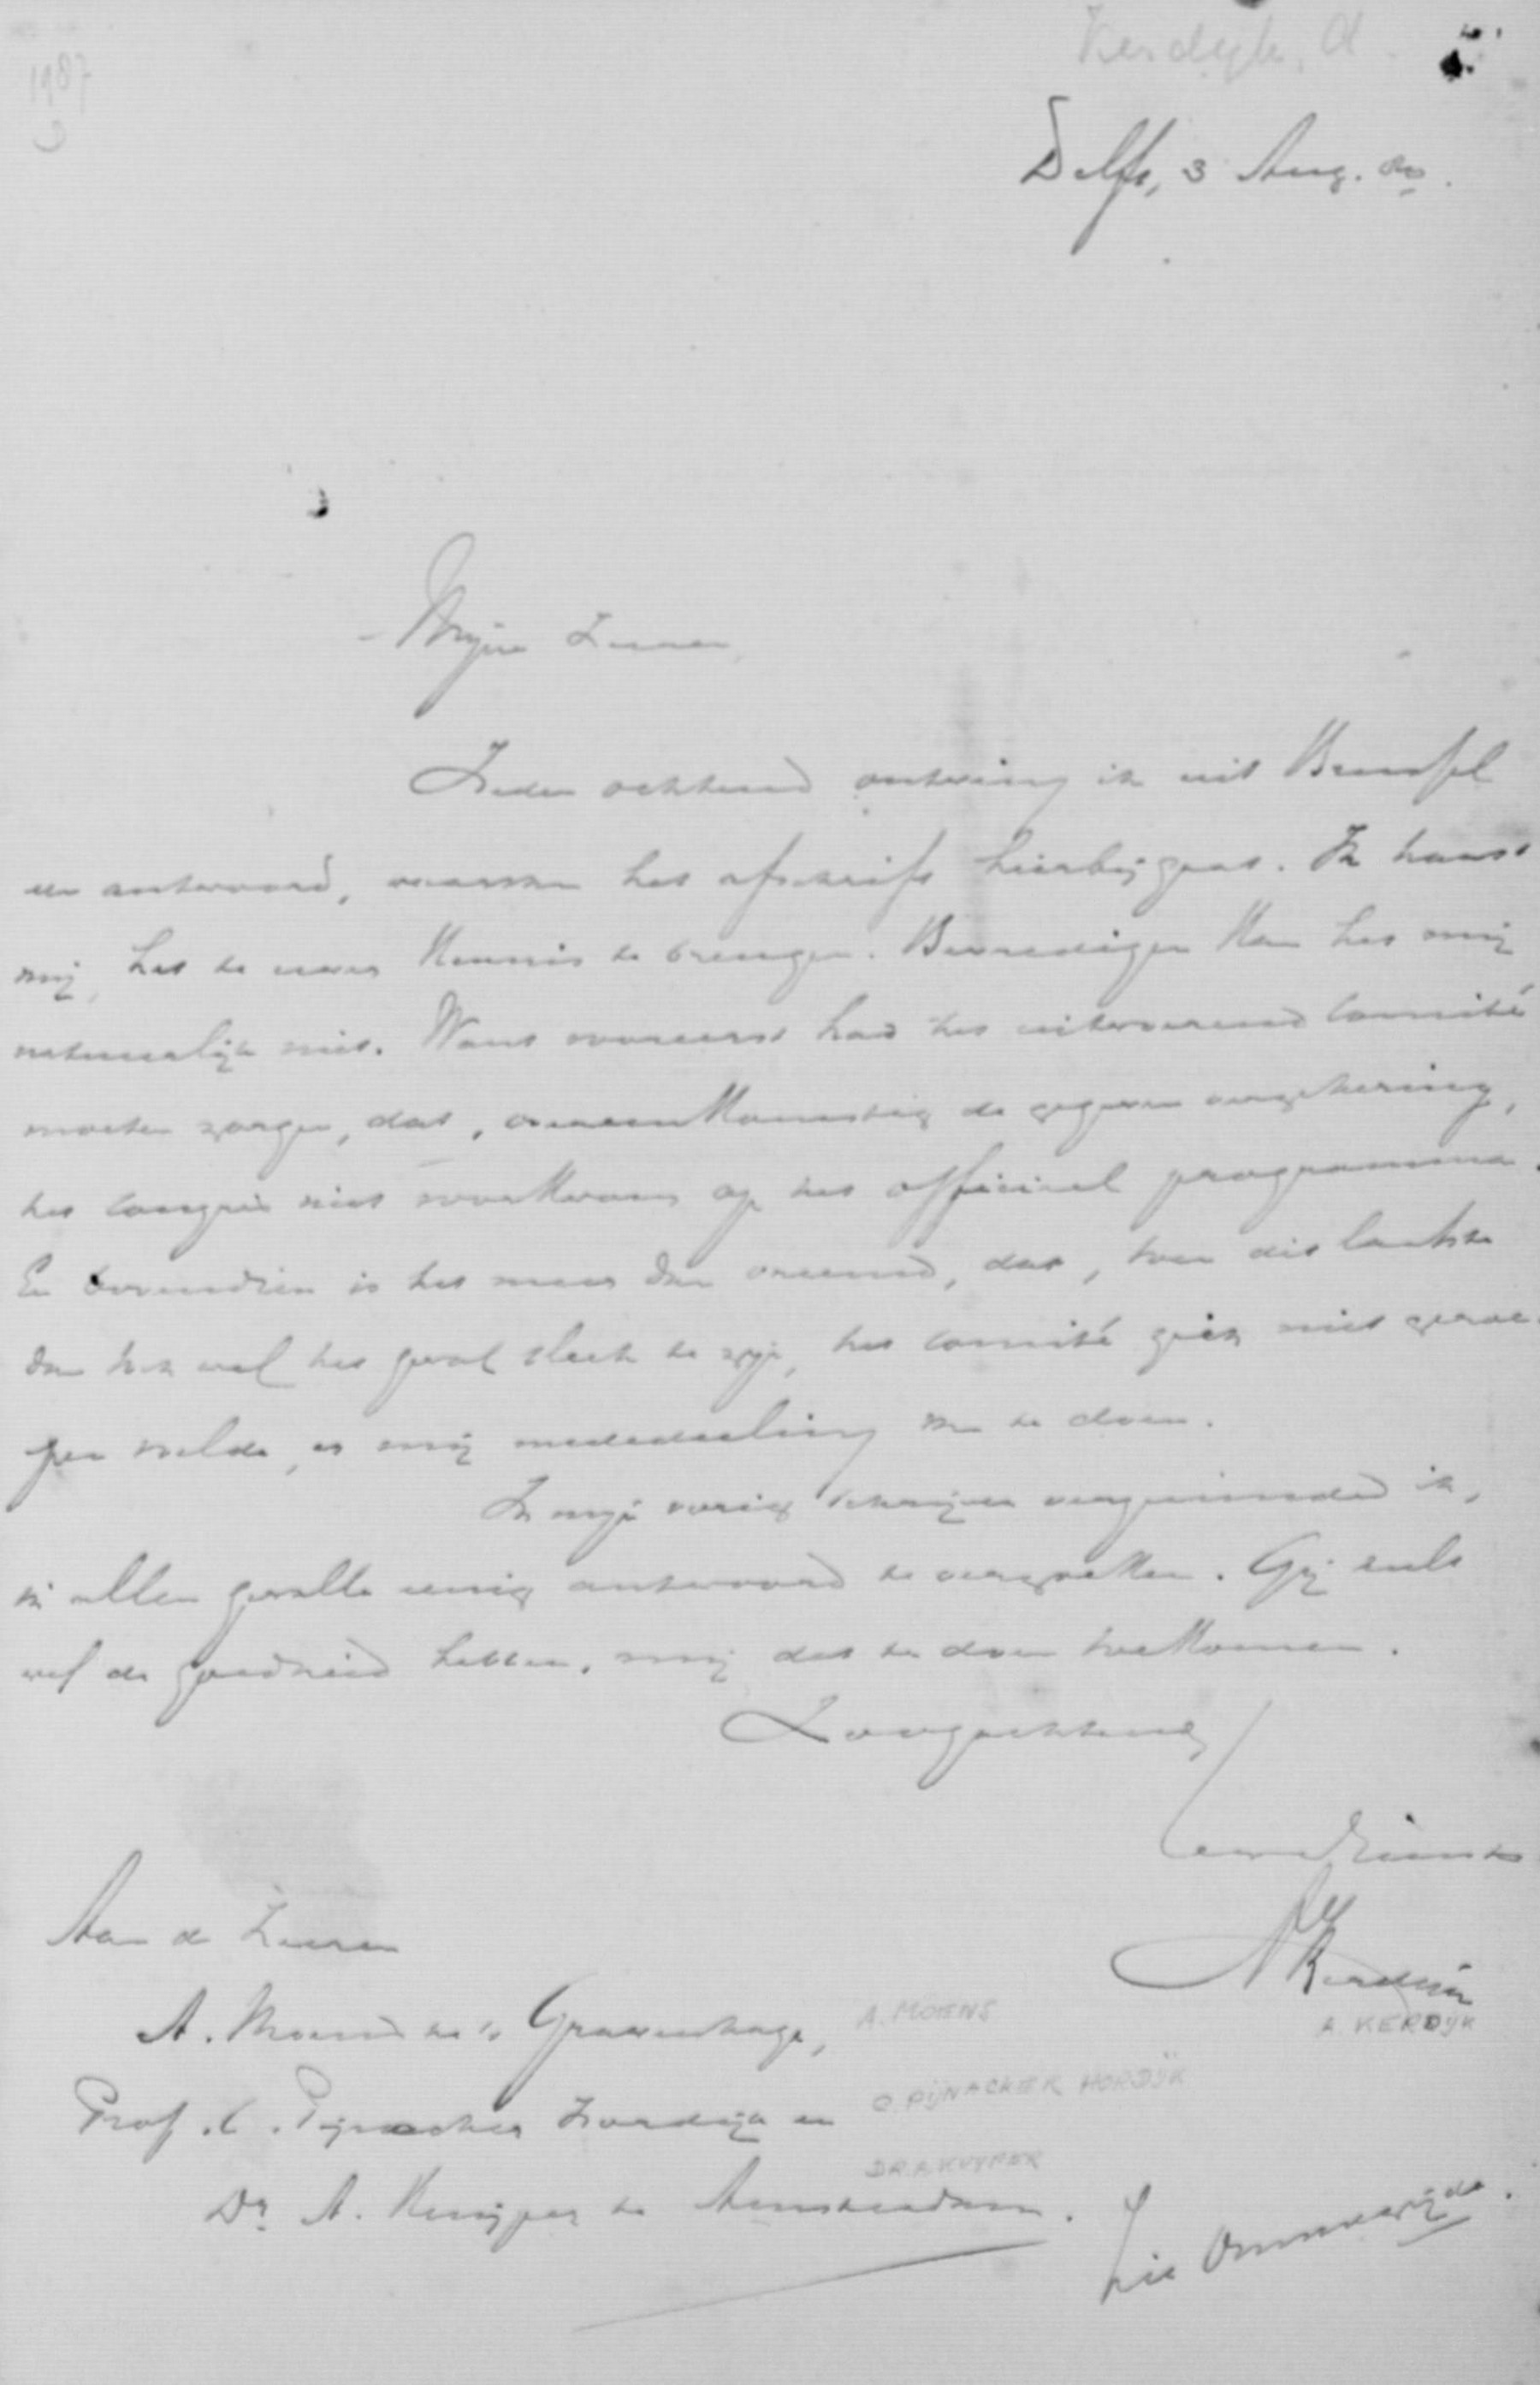 1987
Kerdijk, A.
Delft, 3 Aug. 80.
Mijne Heeren,
Heden ochtend ontving ik uit Brussel
een antwoord, waarvan het afschrift hierbij gaat. Ik haast
mij, het te uwer kennis te brengen. Bevredigen kan het mij
natuurlijk niet. Want vooreerst had het uitvoerend Comité
moeten zorgen, dat, overeenkomstig de gegeven verzekering,
het congres niet voorkwam op het officieel programma.
En bovendien is het meer dan vreemd, dat, toen dit laatste
dan toch wel het geval bleek te zijn, het comité zich niet geroe-
pen voelde, er mij mededeeling van te doen.
In mijn vorig schrijven verzuimde ik,
in allen gevalle eenig antwoord te verzoeken. Gij zult
wel de goedheid hebben, mij dat te doen toekomen.
Hoogachtend,
Uw dienstv.
AKerdijk
A. KERDIJK
Aan de Heeren
A. Moens te 's Gravenhage,
A. MOENS
Prof. C. Pijnacker Hordijk en
C. PIJNACKER HORDIJK
Dr. A. Kuijper te Amsterdam.
DR. A. KUYPER
Zie Ommezijde.